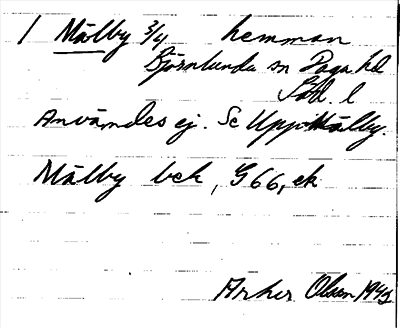 1 Mälby 3/4 hemman
Björnlunda sn Daga hd
Söd. l
Användes ej. Se Uppmälby.
Mälby bek, G66, ek
Olsen 1942